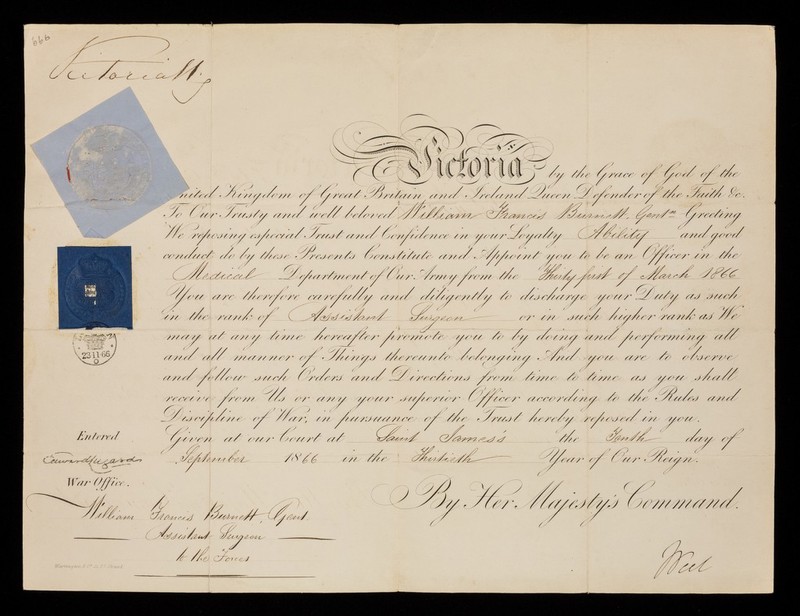 666
Victoria R
Victoria by the Grace of God of the
United Kingdom of Great Britain and Ireland Queen Defender of the Faith &c.
To Our Trusty and well beloved William Francis Burnett Gentn Greeting
We reposing especial Trust and Confidence in your Loyalty Ability and good
conduct do by these Presents Constitute and Appoint you to be an Officer in the
Medical Department of Our Army from the Thirty first of March 1866
You are therefore carefully and diligently to discharge your Duty as such
in the rank of Assistant Surgeon or in such higher rank as We
may at any time hereafter promote you to by doing and performing all
and all manner of Things thereunto belonging And you are to observe
and follow such Orders and Directions from time to time as you shall
receive from Us or any your superior Officer according to the Rules and
Discipline of War, in pursuance of the Trust hereby reposed in you.
Given at our Court at Saint James's the Tenth day of
September 1866 in the Thirtieth Year of Our Reign.
By Her Majesty's Command.
23·11·66
Entered
Edward Lugard
War Office.
William Francis Burnett, Gent
Assistant Surgeon
to the Forces
Peel